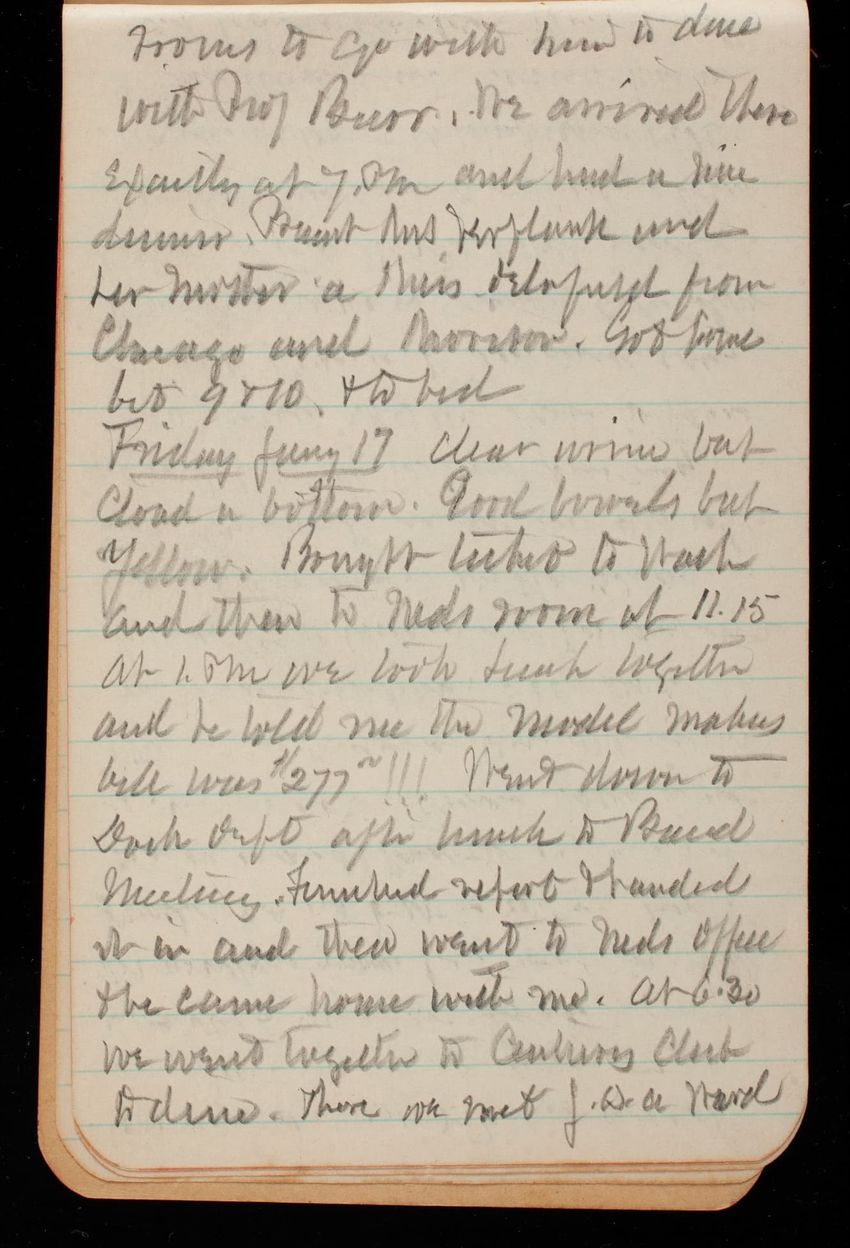 rooms to go with him to dine
with Prof Burr. We arrived there
Exactly at 7 PM and had a nice
dinner. Present Mrs Verplank and
her mother a Miss Delafield from
Chicago and Morison. Got home
bet 9 & 10. & to bed
Friday Jany 17 Clear urine but
Cloud a bottom. Good bowels but
Yellow. Bought ticket to Wash
and then to Neds room at 11.15
At 1. PM we took lunch together
and he told me the model makers
bill was $277 !!! Went down to
Dock Dept after lunch to Board
Meeting. Finished report & handed
it in and then went to Neds Office
& he came home with me. At 6.30
We went together to Century Club
to dine. There we met J.Q.A Ward